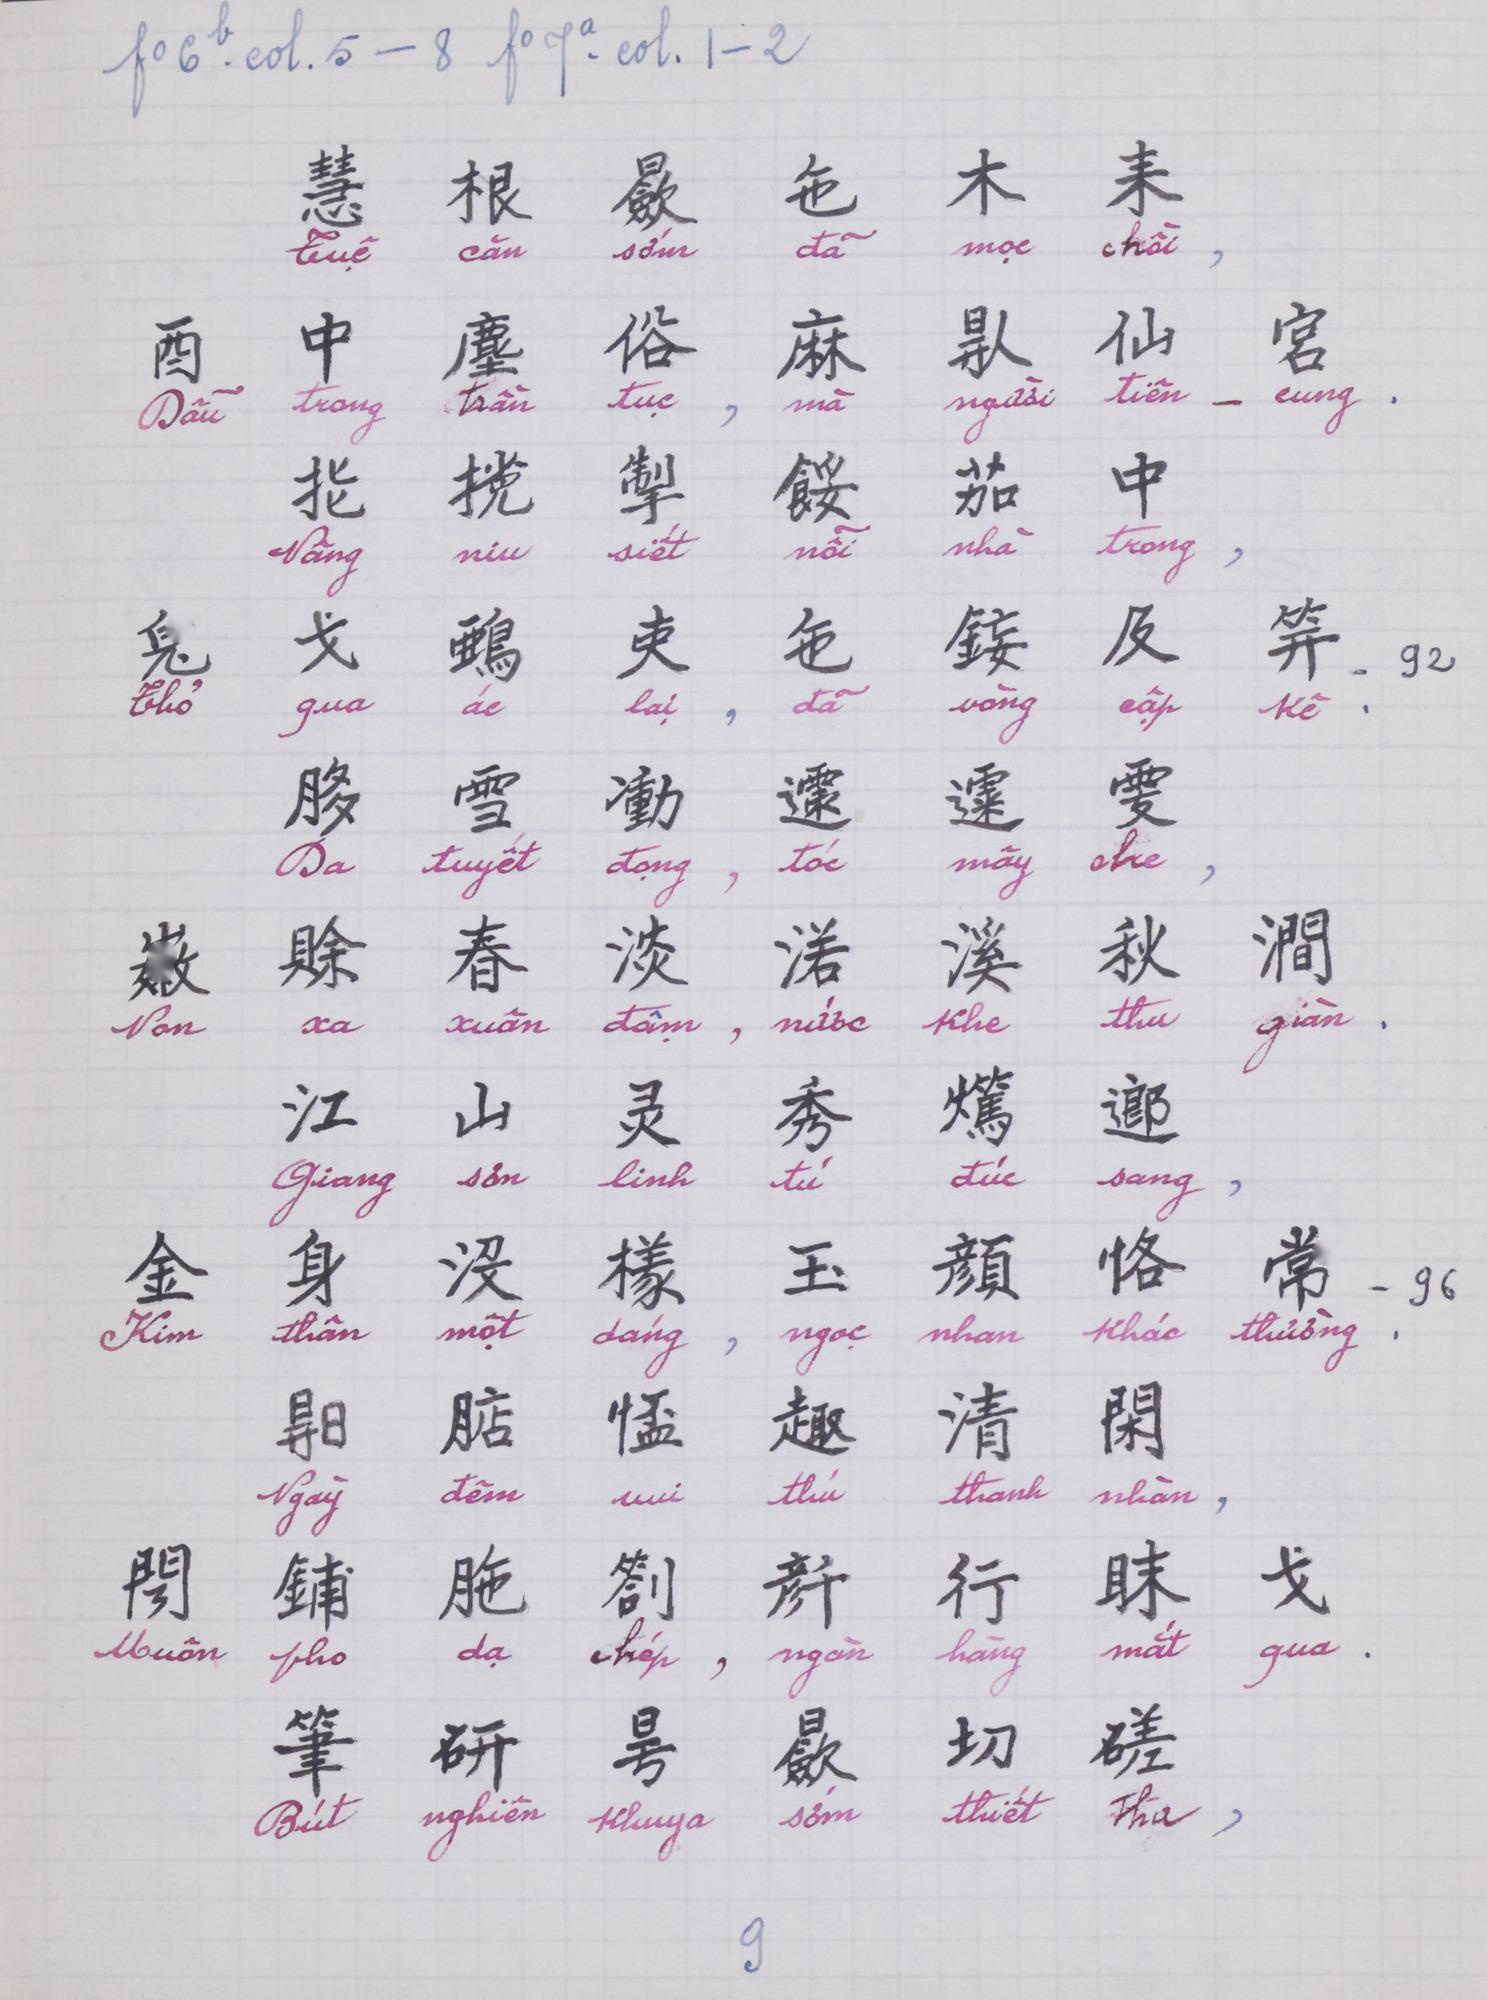 fo 6b. col. 5 – 8 fo 7a. col. 1 – 2
慧 根 歛 㐌 木 耒
Tuệ căn sớm đã mọc chồi,
酉 中 塵 俗 麻 𠊛 仙 宮
Dẫu trong trần tục, mà người tiên – cung.
㧅 𢭮 掣 餒 茄 中
Nâng niu siết nỗi nhà trong,
兎 戈 鵶 吏 㐌 𨦩 及 笄 – 92
Thỏ qua ác lại, đã vòng cập kê.
𤿍 雪 慟 𩯀 𩄲 雯
Da tuyết đọng, tóc mây che,
賒 春 淡 渃 溪 秋 澗
Non xa xuân đậm, nước khe thu giàn.
江 山 灵 秀 𤒘 𨖅
Giang sơn linh tú đúc sang,
金 身 没 様 玉 顔 恪 常 – 96
Kim thân một dáng, ngọc nhan khác thường.
𣈗 𣎀 𢝙 趣 清 閑
Ngày đêm vui thú thanh nhàn,
𨷈 鋪 胣 劄 𠦳 行 眜 戈
Muôn pho dạ chép, ngàn hàng mắt qua.
筆 研 𣇊 歛 切 磋
Bút nghiên khuya sớm thiết tha,
9